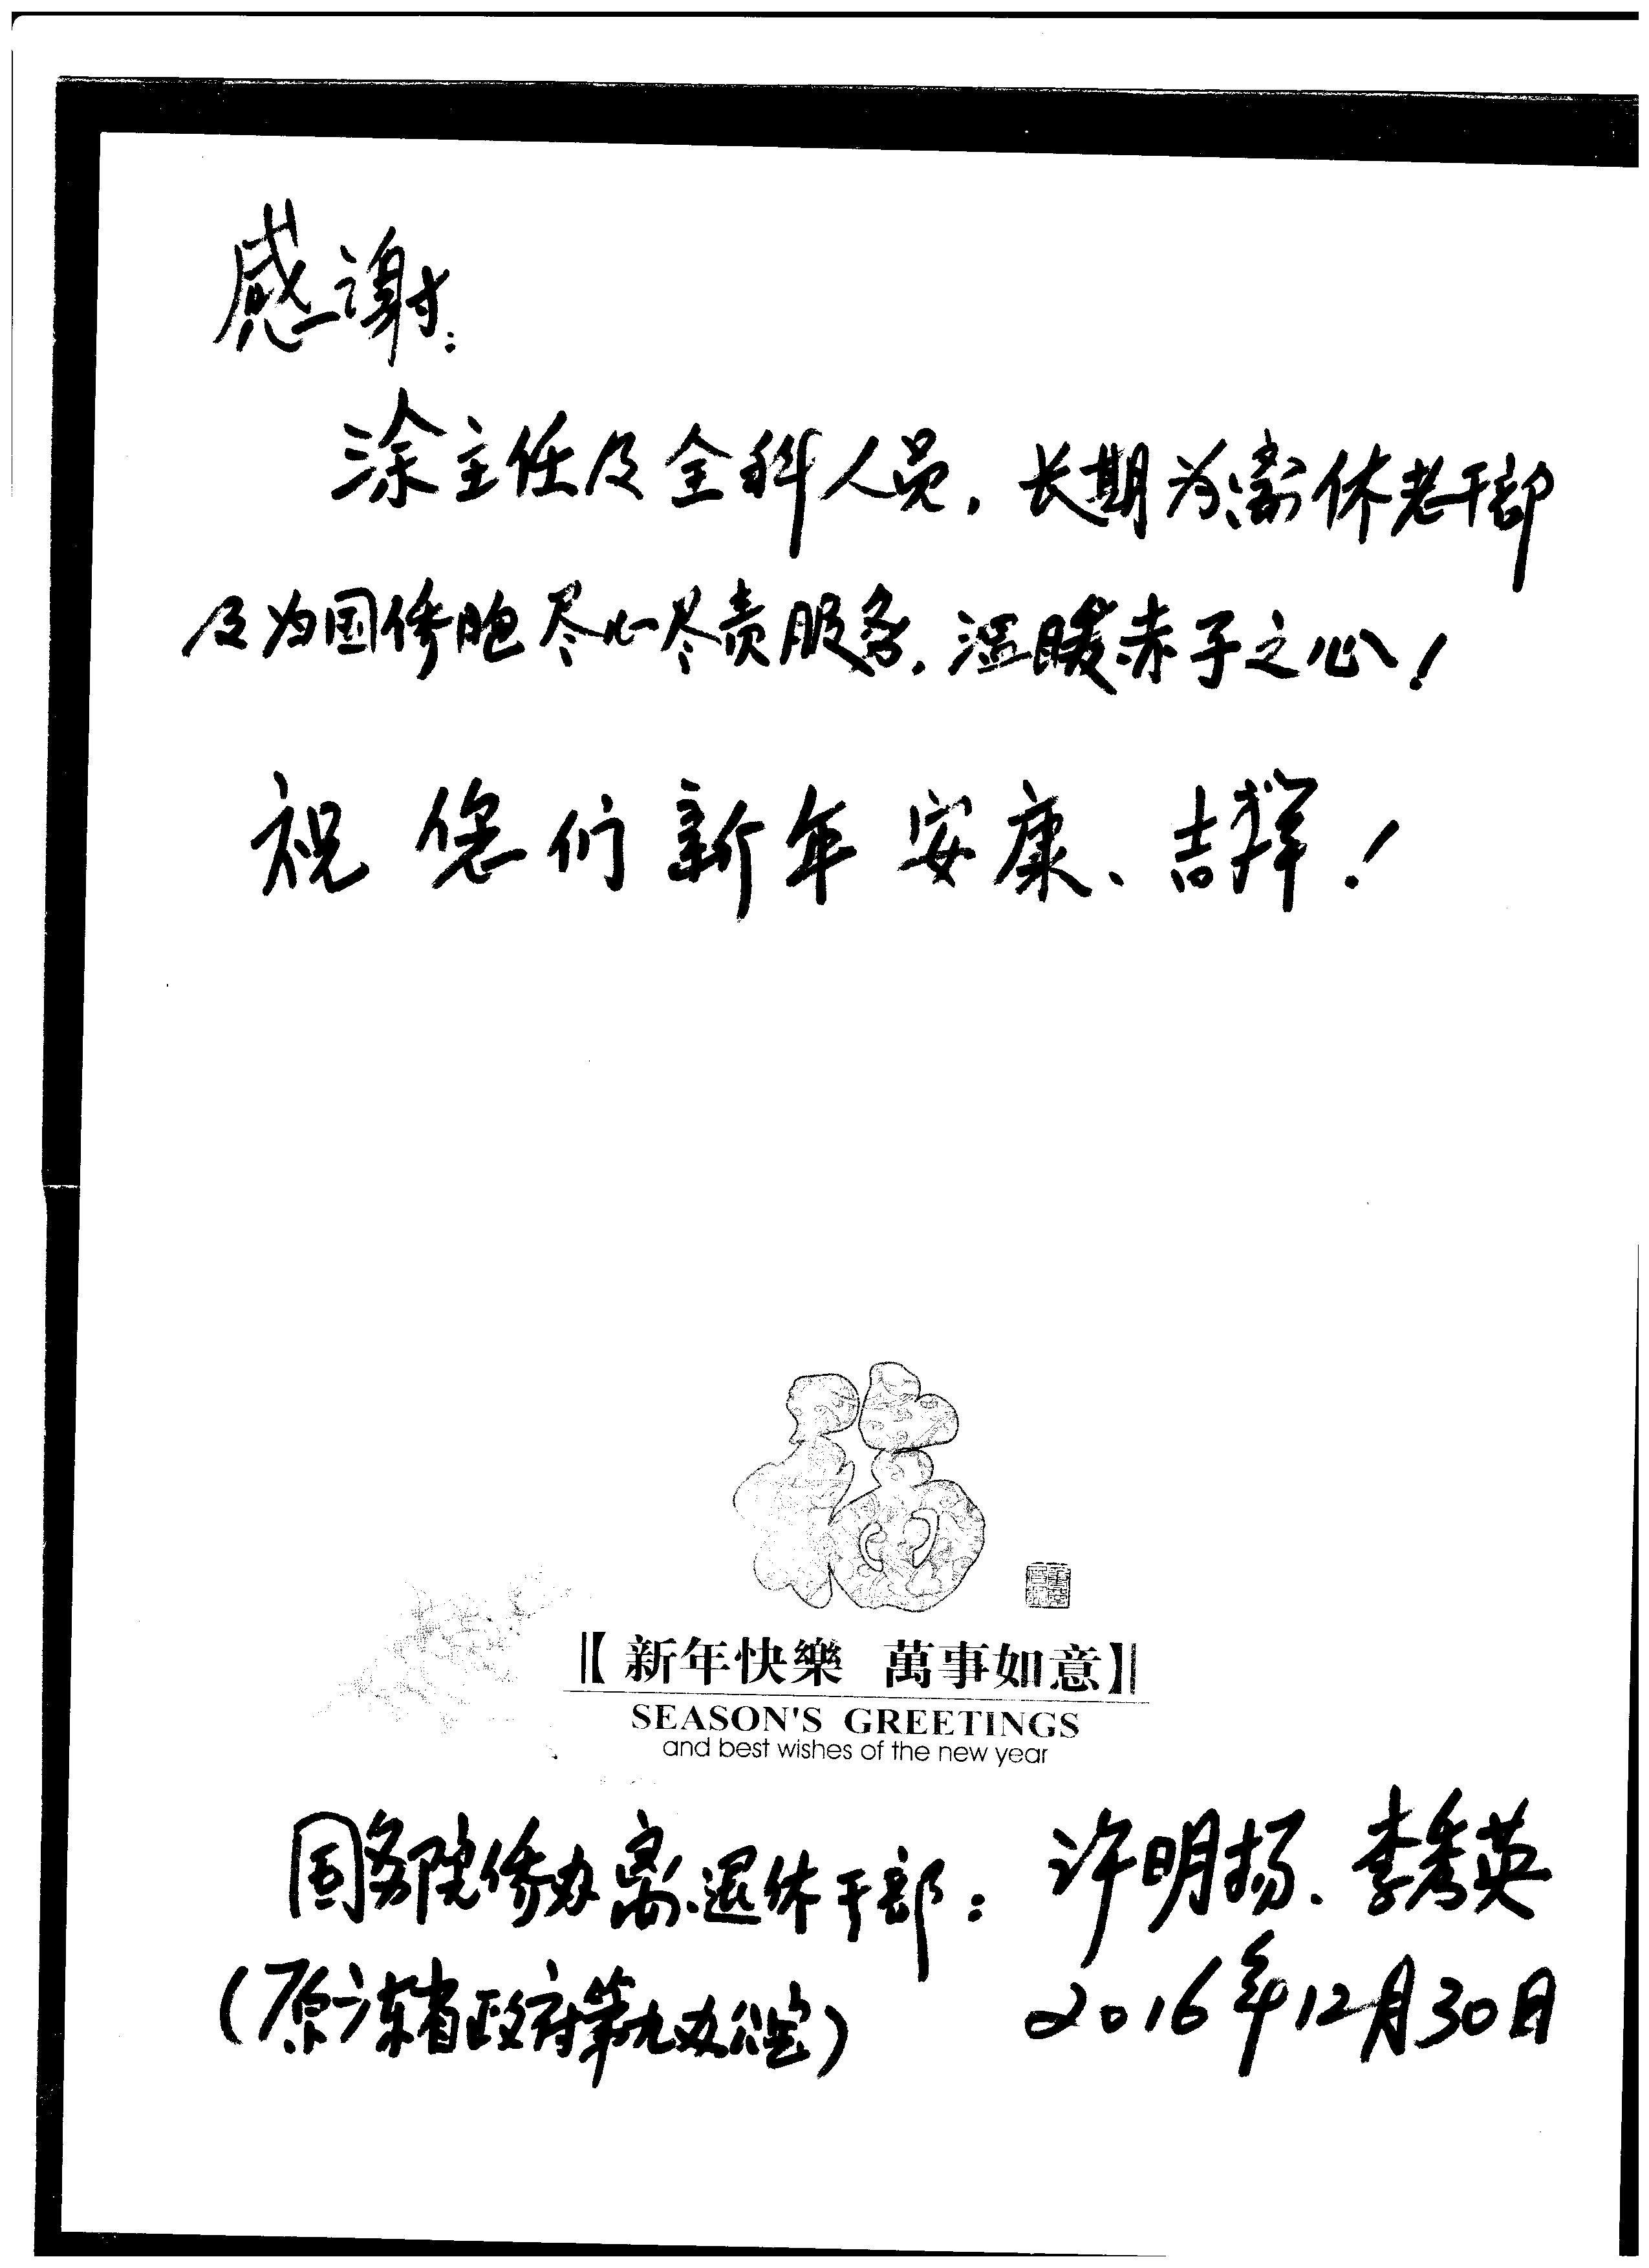 感谢:
涂主任及全科人员，长期为离休老干部
及为国侨胞尽心尽责服务，温暖赤子之心！
祝您们新年安康、吉祥！
福
【新年快樂 萬事如意】
SEASON'S GREETINGS
and best wishes of the new year
国务院侨办离退休干部：许明扬、李秀英
（原广东省政府第九办公室） 2016年12月30日